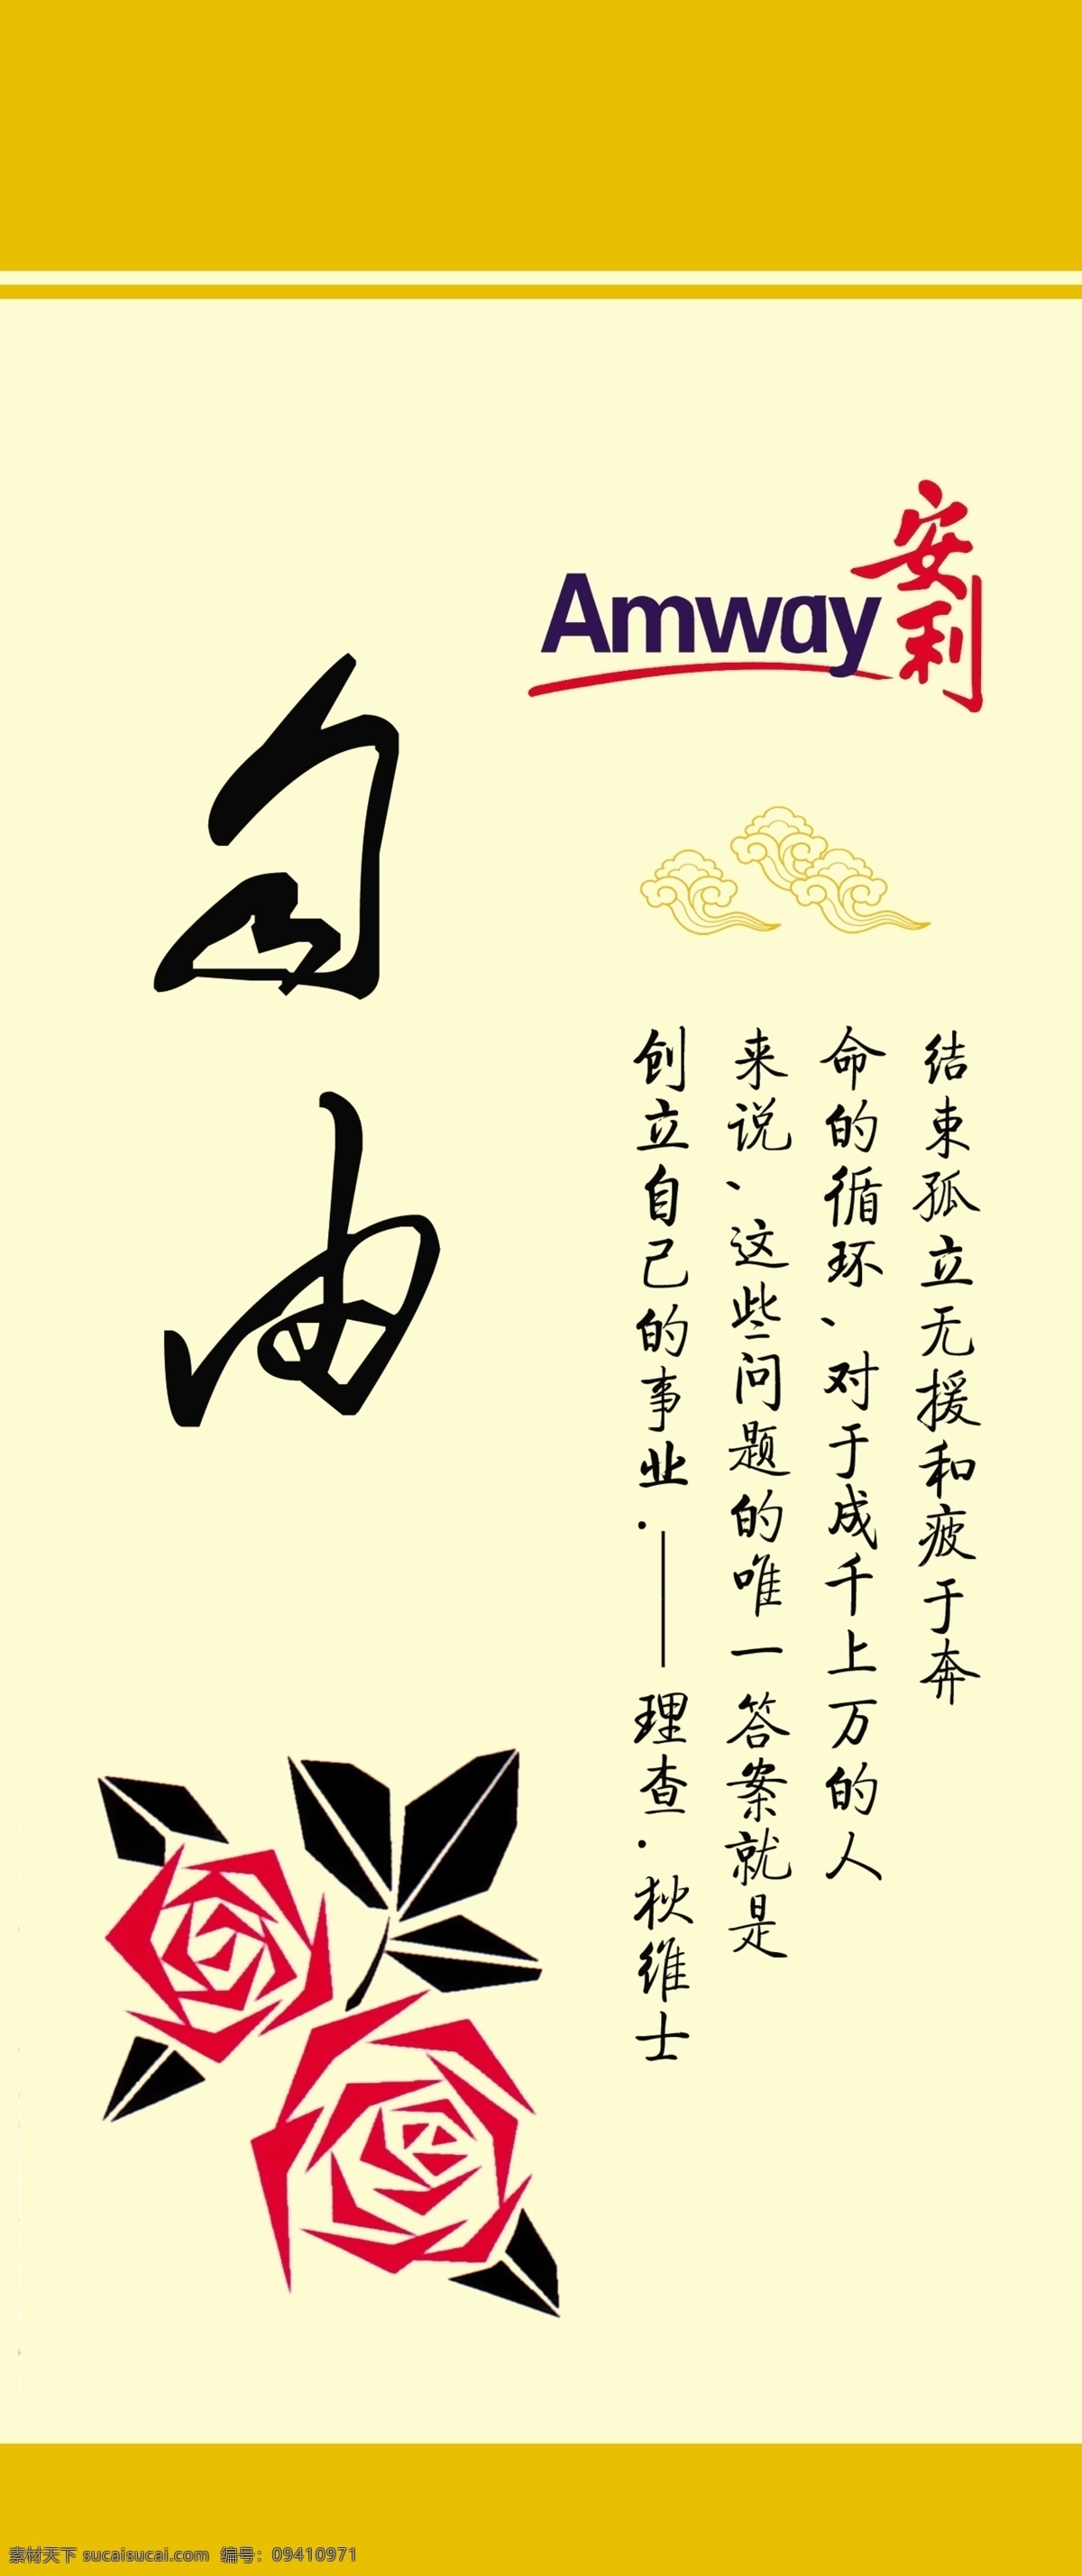 Amway安利
结束孤立无援和疲于奔
命的循环、对于成千上万的人
来说、这些问题的唯一答案就是
创立自己的事业.——理查.狄维士
自由
素材天下 sucaisucai.com 编号：09410971